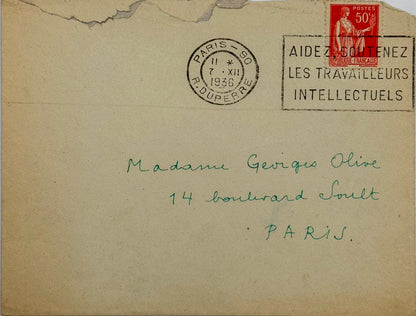 POSTES
50c
PARIS-90
11 *
7 -XII
1936
R. DUPERRÉ
AIDEZ, SOUTENEZ
LES TRAVAILLEURS
INTELLECTUELS
Madame Georges Olive
14 boulevard Soult
PARIS.